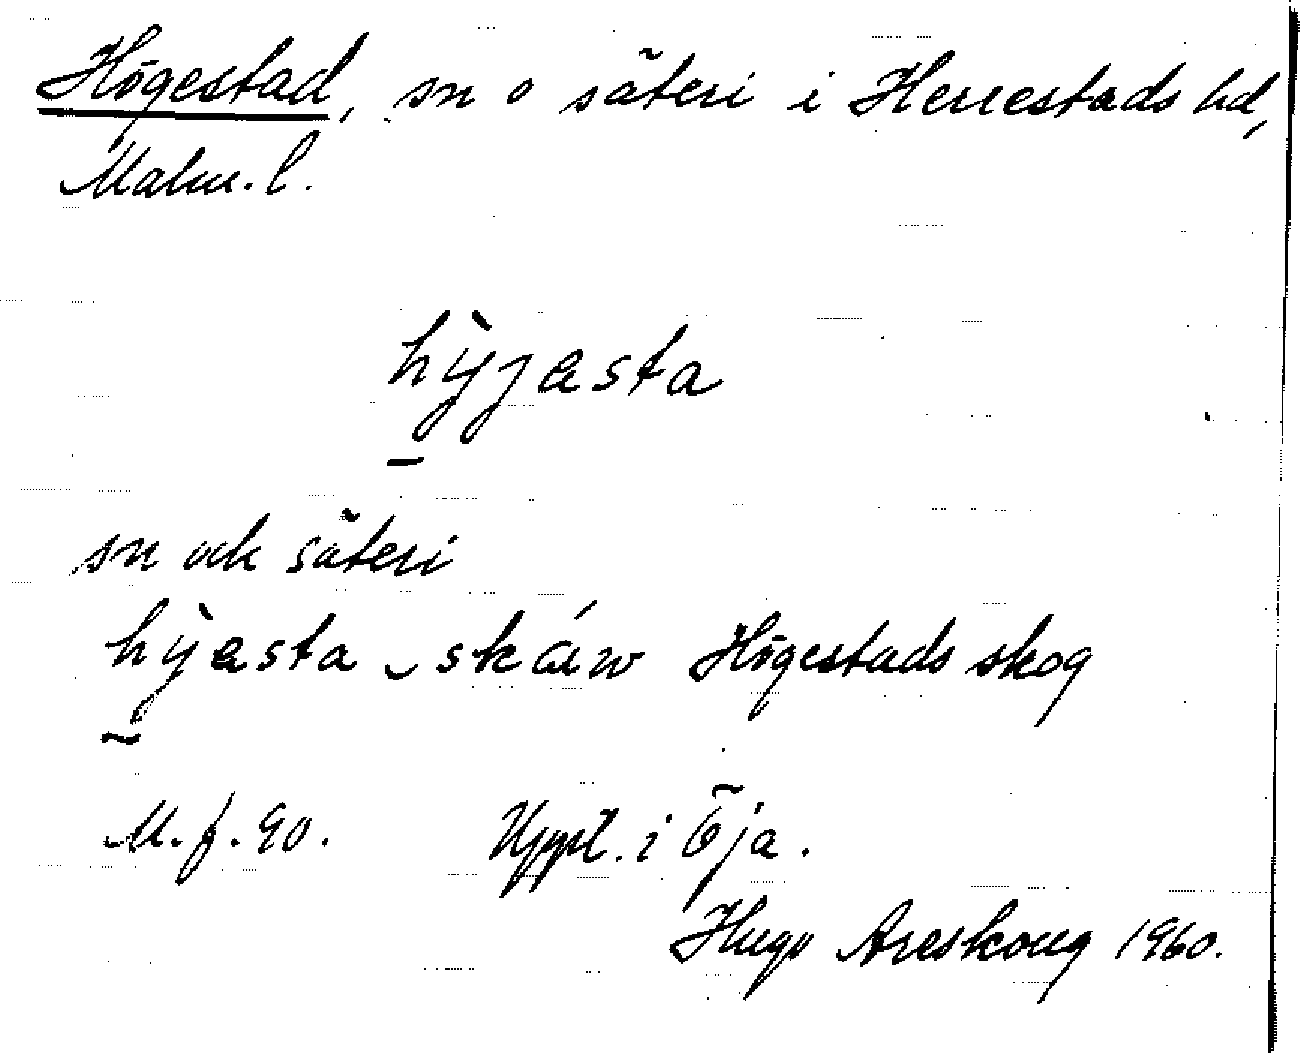 Högestad, sn o säteri i Herrestads hd,
Malm. l.
hỳjasta
sn och säteri
hỳjasta ‿ skáw Högestads skog
M. f. 90. Uppt. i Öja.
Hugo Areskoug 1960.